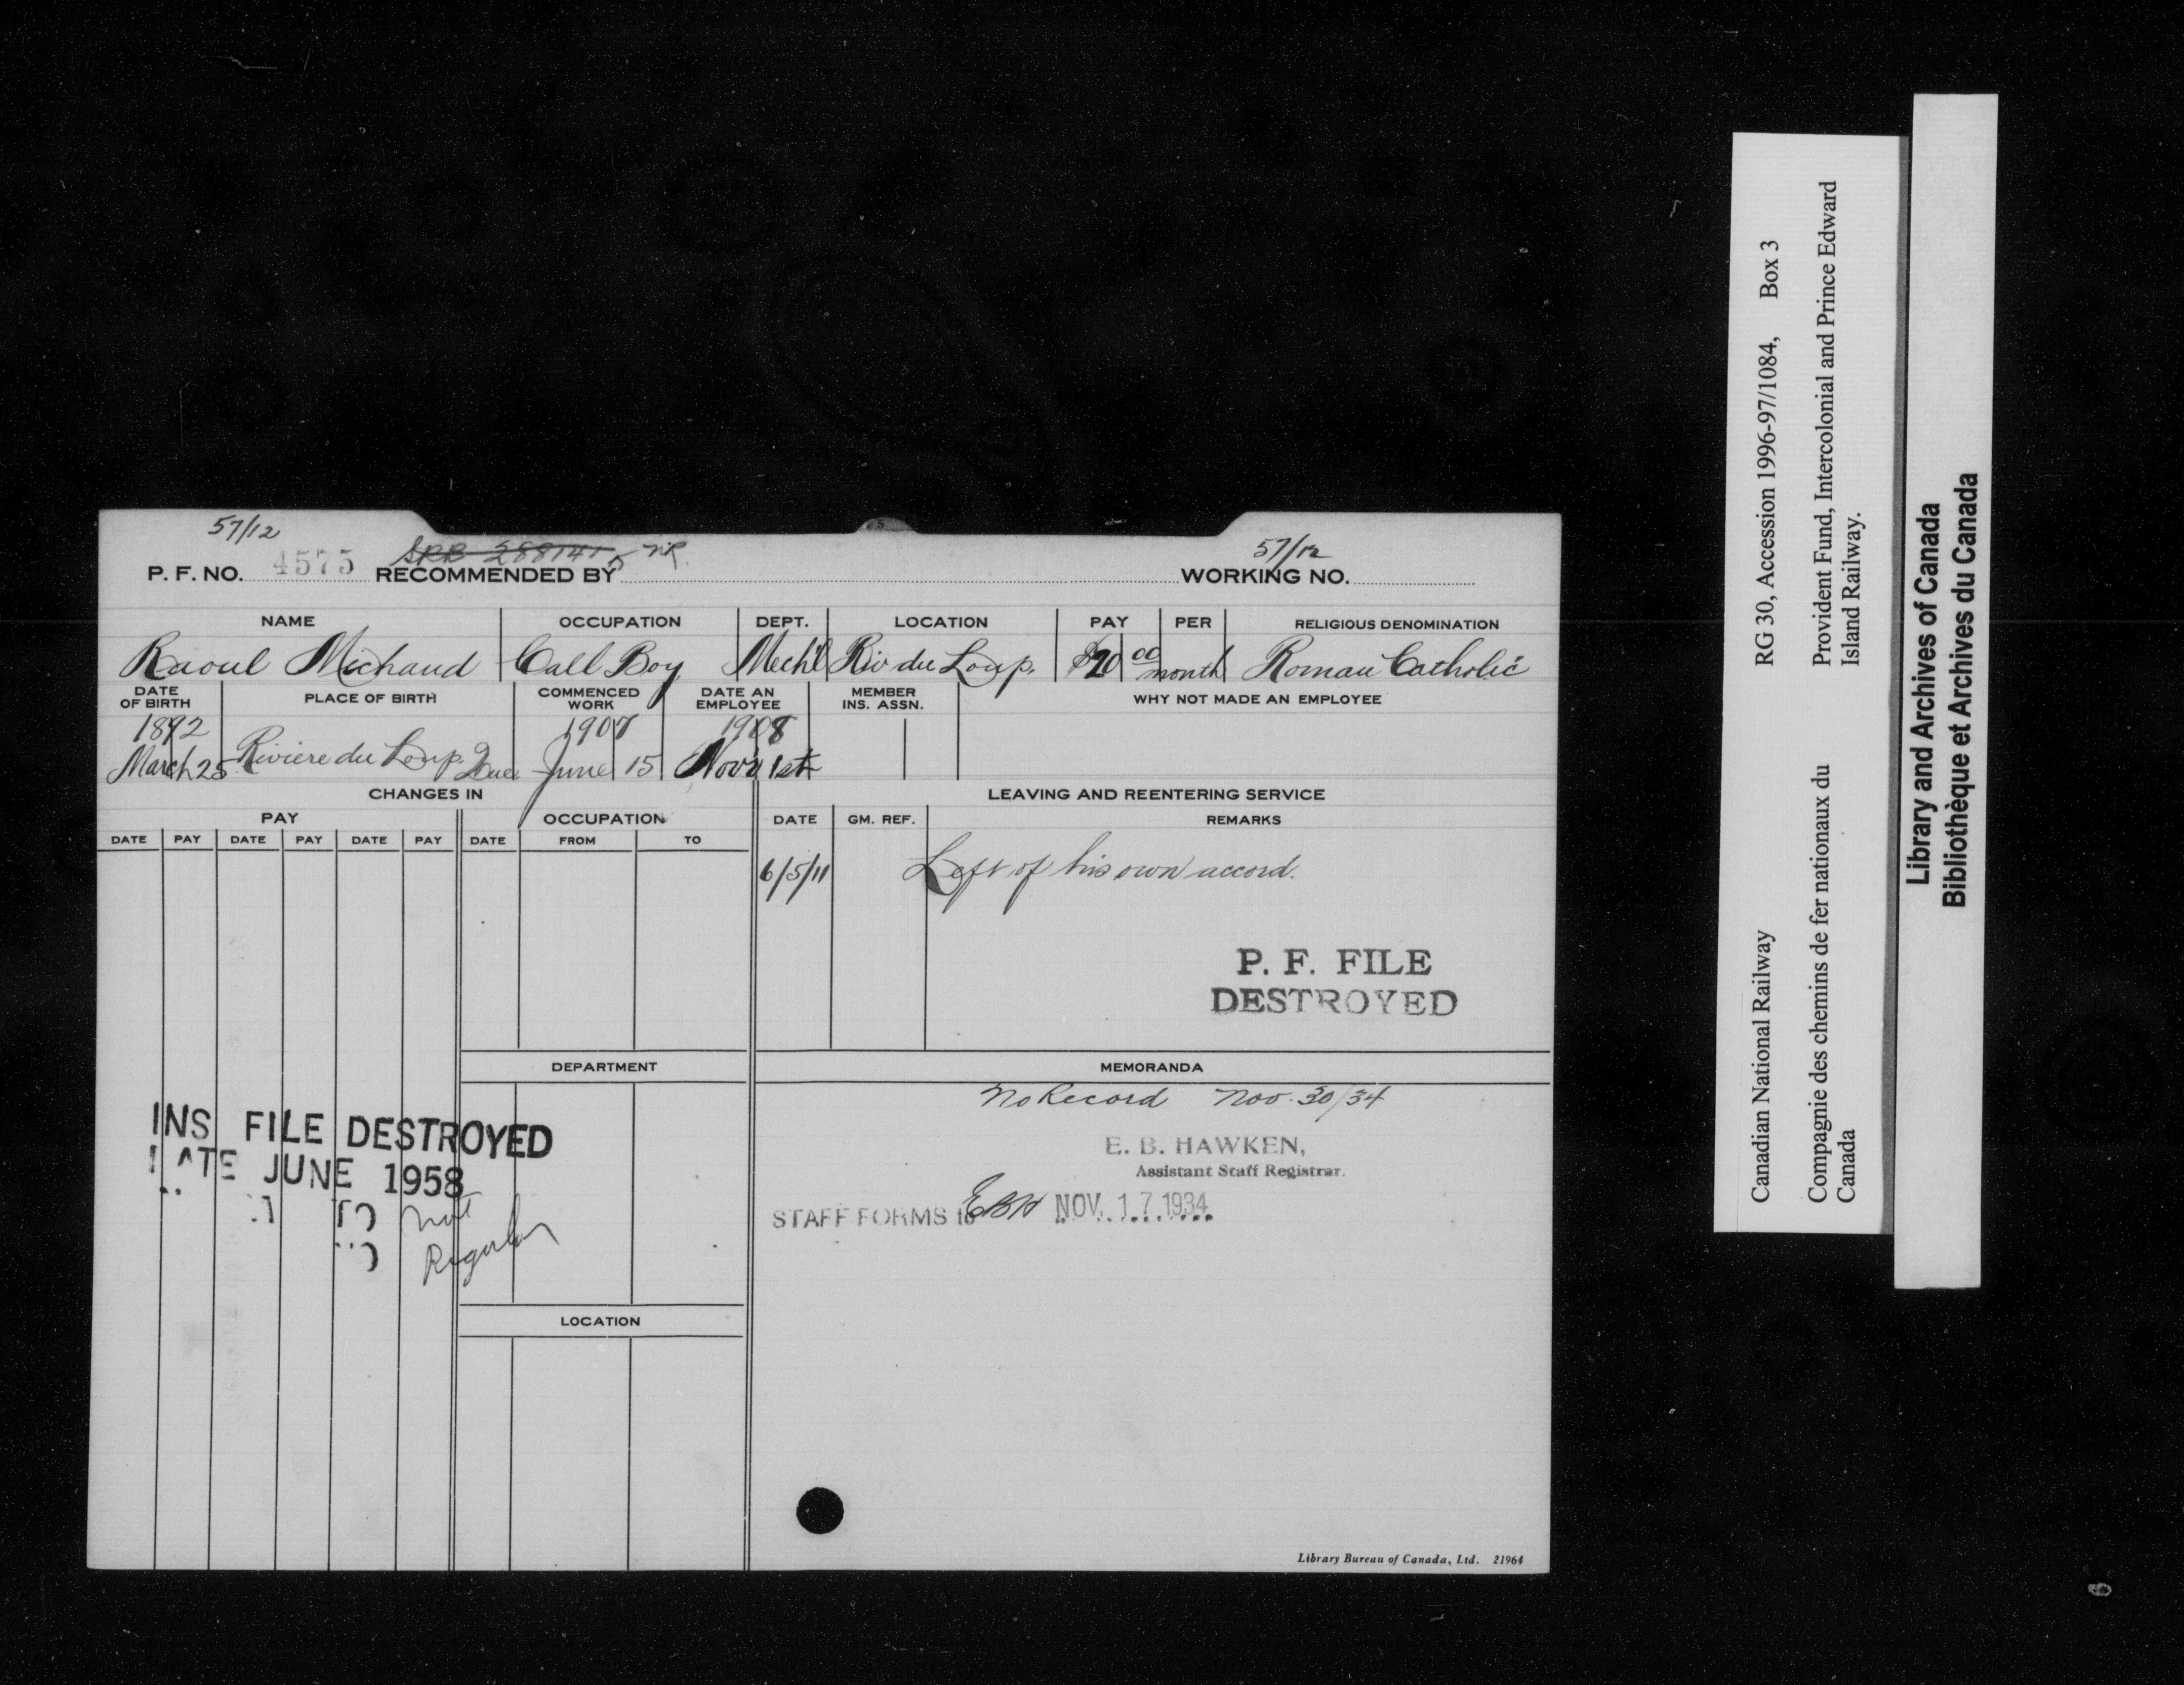 57/12
57/12
P. F. NO. 4575 RECOMMENDED BY WORKING NO.
NAME OCCUPATION DEPT. LOCATION PAY PER RELIGIOUS DENOMINATION
Raoul Michaud Call Boy Mech'l Riv du Loup. $20 00 month Roman Catholic
DATE OF BIRTH PLACE OF BIRTH COMMENCED WORK DATE AN EMPLOYEE MEMBER INS. ASSN. WHY NOT MADE AN EMPLOYEE
1892 1907 1908
March 25 Riviere du Loup Que June 15 Nov'r 1st
CHANGES IN LEAVING AND REENTERING SERVICE
PAY OCCUPATION DATE GM. REF. REMARKS
DATE PAY DATE PAY DATE PAY DATE FROM TO
6/5/11 Left of his own accord.
P. F. FILE
DESTROYED
DEPARTMENT MEMORANDA
No Record Nov. 30/34
INS FILE DESTROYED
DATE JUNE 1958
Not
Regular
E. B. HAWKEN,
Assistant Staff Registrar.
STAFF FORMS to EBH NOV. 17 1934
LOCATION
Library Bureau of Canada, Ltd. 21964
Canadian National Railway RG 30, Accession 1996-97/1084, Box 3
Compagnie des chemins de fer nationaux du Provident Fund, Intercolonial and Prince Edward
Canada Island Railway.
Library and Archives of Canada
Bibliothèque et Archives du Canada